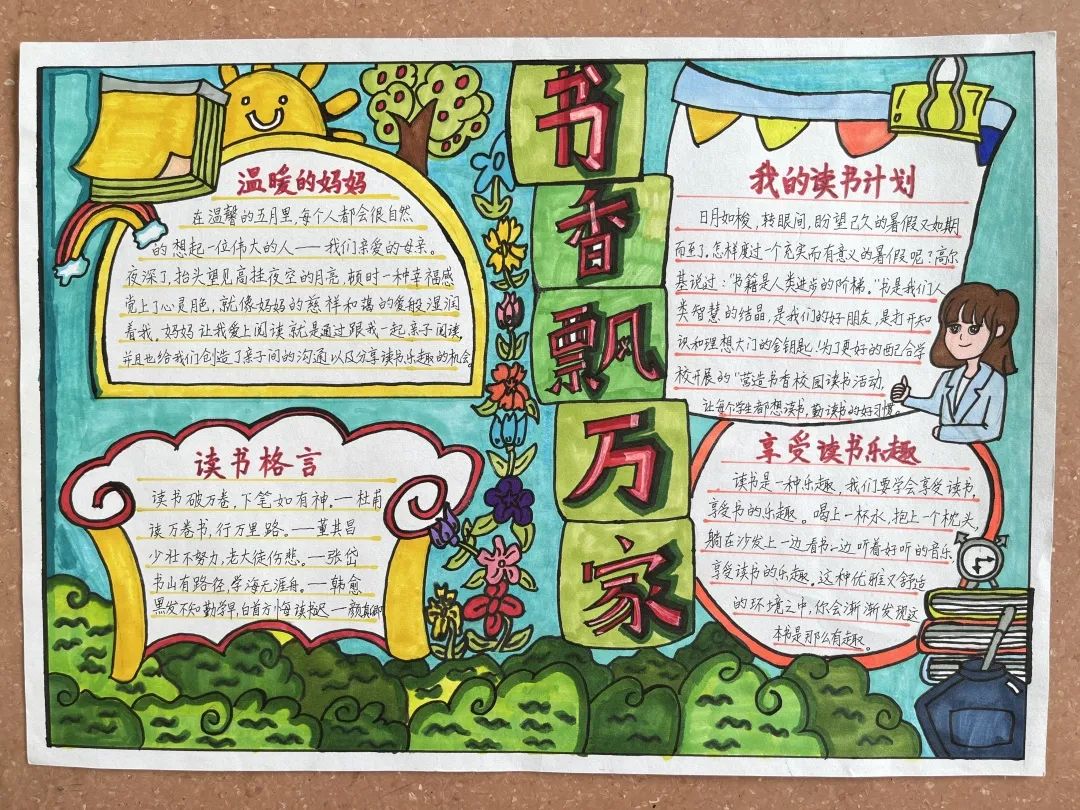 书香飘万家
温暖的妈妈
在温馨的五月里,每个人都会很自然
的想起一位伟大的人——我们亲爱的母亲。
夜深了,抬头望见高挂夜空的月亮,顿时一种幸福感
觉上了心灵,就像妈妈的慈祥和蔼的爱般湿润
着我。妈妈让我爱上阅读就是通过跟我一起亲子阅读,
并且也给我们创造了亲子间的沟通以及分享读书乐趣的机会。
读书格言
读书破万卷,下笔如有神。——杜甫
读万卷书,行万里路。——董其昌
少壮不努力,老大徒伤悲。——张岱
书山有路径,学海无涯舟。——韩愈
黑发不知勤学早,白首方悔读书迟——颜真卿
我的读书计划
日月如梭,转眼间,盼望已久的暑假又如期
而至了。怎样度过一个充实而有意义的暑假呢?高尔
基说过:"书籍是人类进步的阶梯。"书是我们人
类智慧的结晶,是我们的好朋友,是打开知
识和理想大门的金钥匙!为了更好的配合学
校开展的"营造书香校园读书活动,
让每个学生都想读书,勤读书的好习惯。
享受读书乐趣
读书是一种乐趣,我们要学会享受读书,
享受书的乐趣。喝上一杯水,抱上一个枕头,
躺在沙发上一边看书一边听着好听的音乐,
享受读书的乐趣。这种优雅又舒适
的环境之中,你会渐渐发现这
本书是那么有趣。